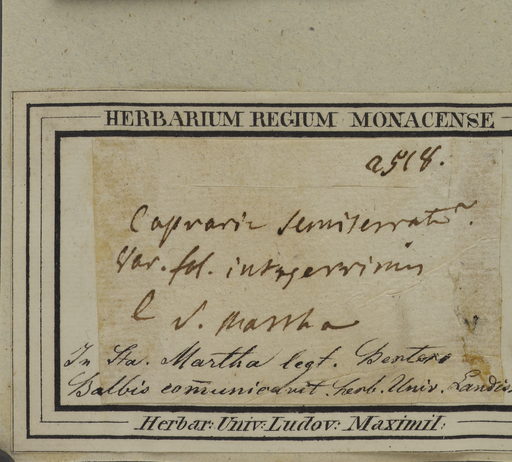 HERBARIUM REGIUM MONACENSE
2518.
Capraria semiserrata
Var. fol. integerrimis
e S. Martha
In Sta. Martha legt. Bertero
Balbis com̄unicavit. herb. Univ. Landish.
Herbar: Univ: Ludov: Maximil: